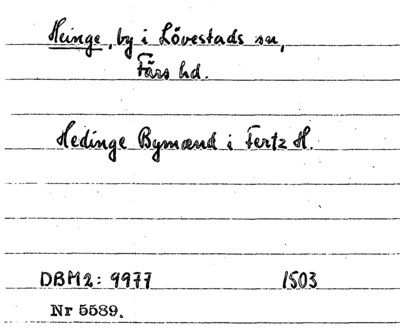 Heinge, by i Lövestads sn,
Färs hd.
Hedinge Bymænd i Fertz H.
DBM2: 9977 1503
Nr 5589.